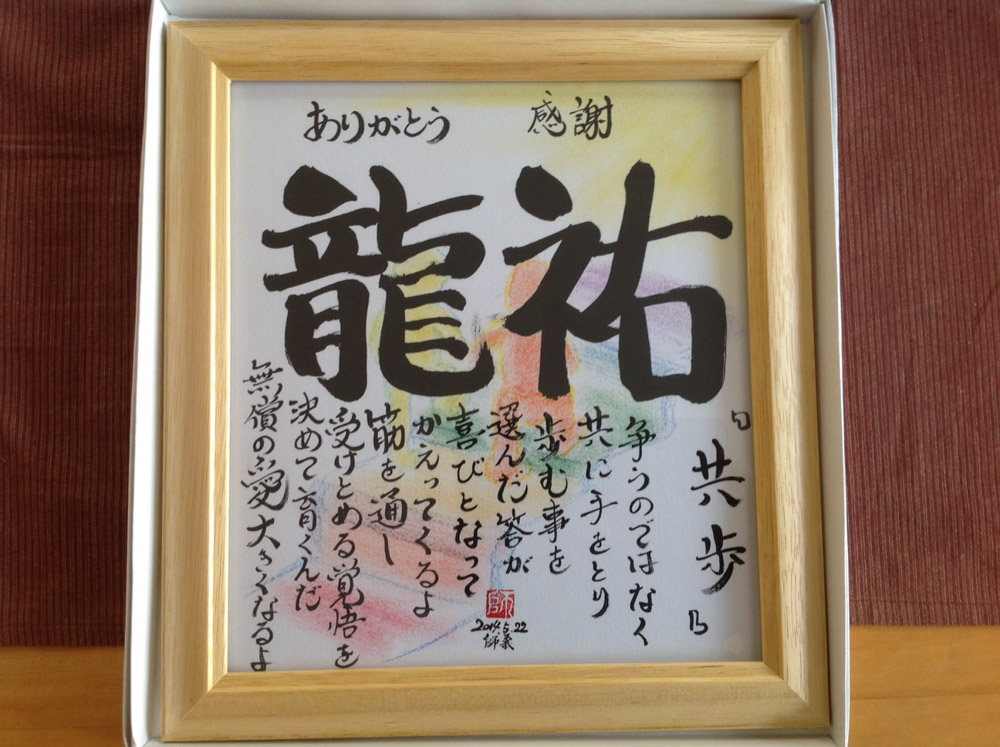 感謝
ありがとう
祐龍
「共歩」
争うのではなく
共に手をとり
歩む事を
選んだ答が
喜びとなって
かえってくるよ
筋を通し
受けとめる覚悟を
決めて育くんだ
無償の愛大きくなるよ
2014.5.22